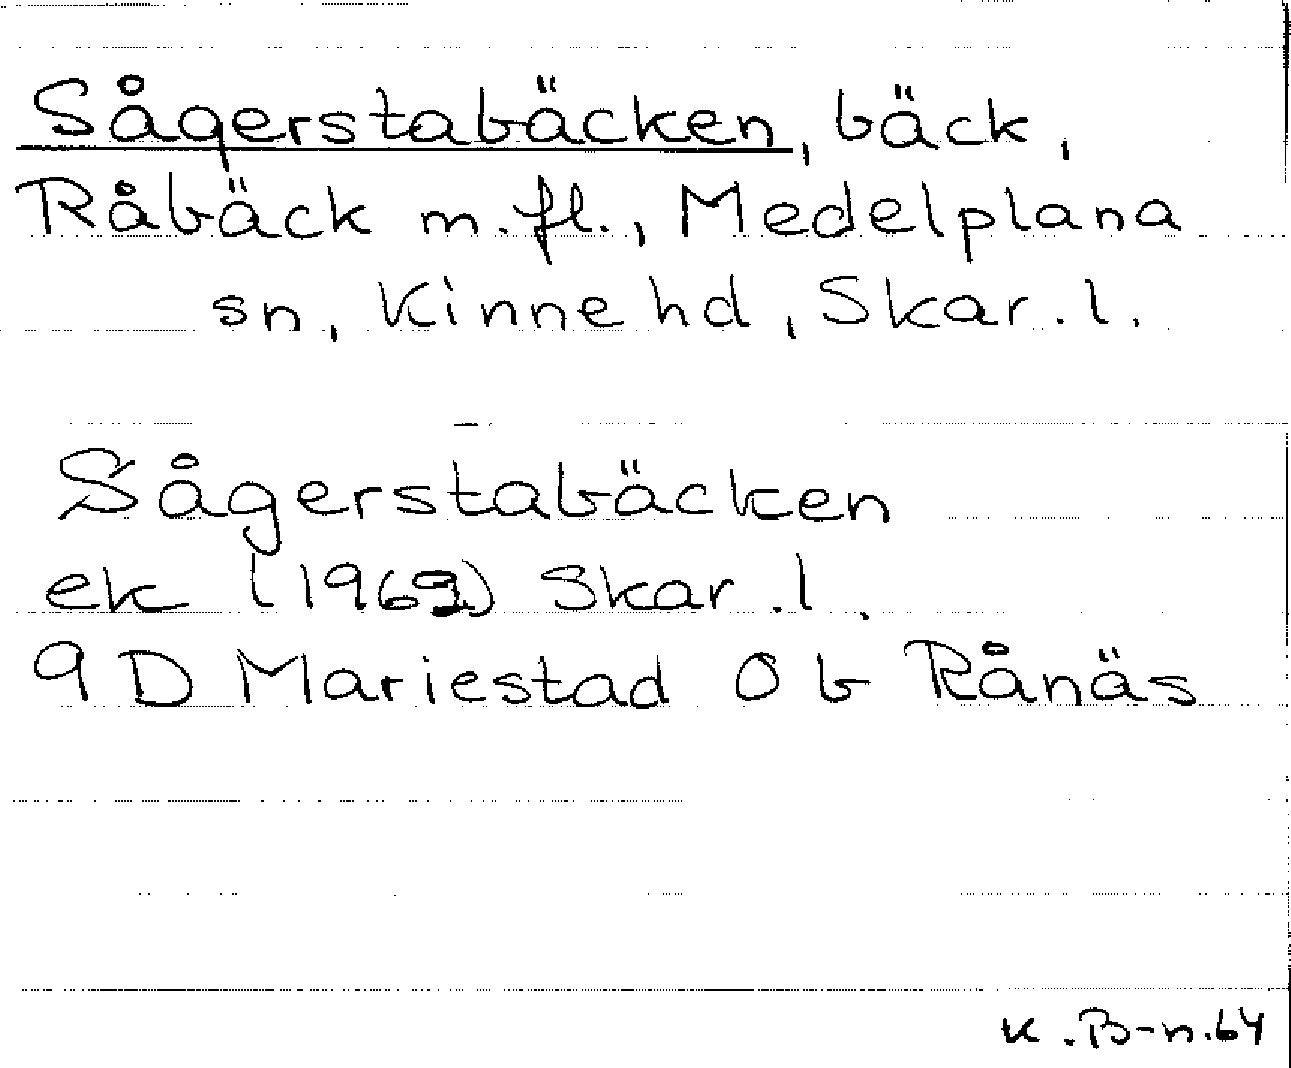 Sågerstabäcken, bäck,
Råbäck m.fl., Medelplana
sn, Kinne hd, Skar.l.
Sågerstabäcken
ek (1969) Skar.l.
9 D Mariestad 0 b Rånäs
K.B-n.64